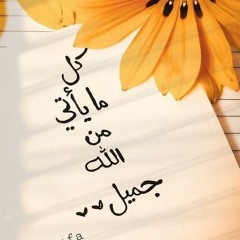 كل
ما يأتي
من
الله
جميل